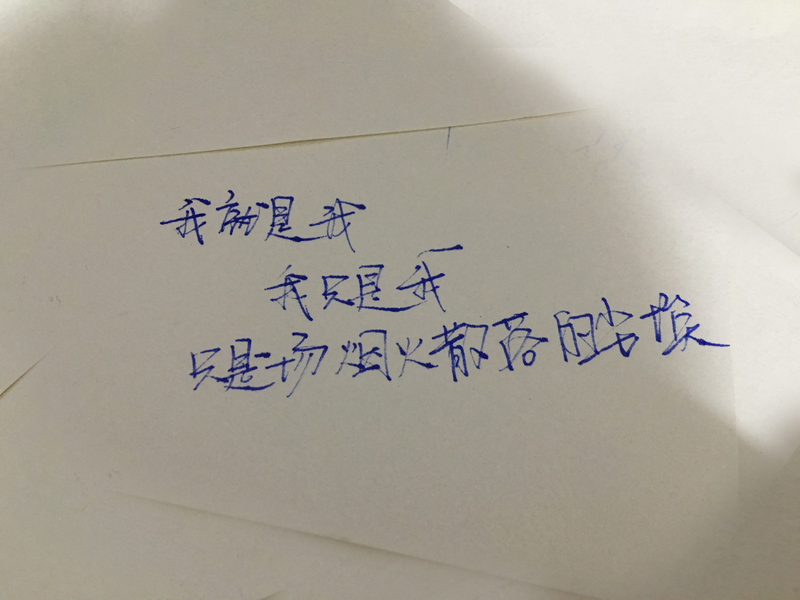 我就是我
我只是我
只是场烟火散落的尘埃